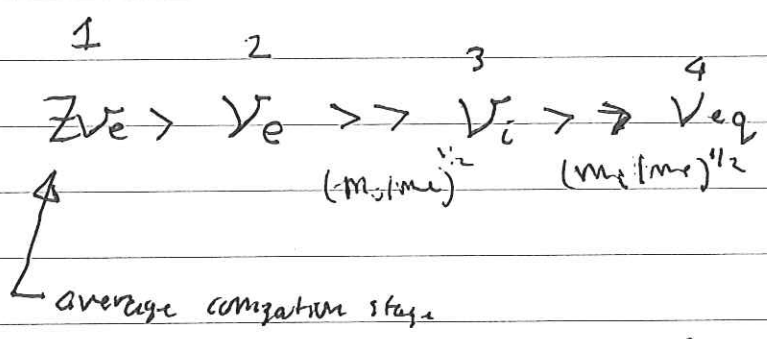 1 2 3 4
Zνe > νe >> νi >> νeq
(mi/me)^1/2 (mi/me)^1/2
average ionization stage